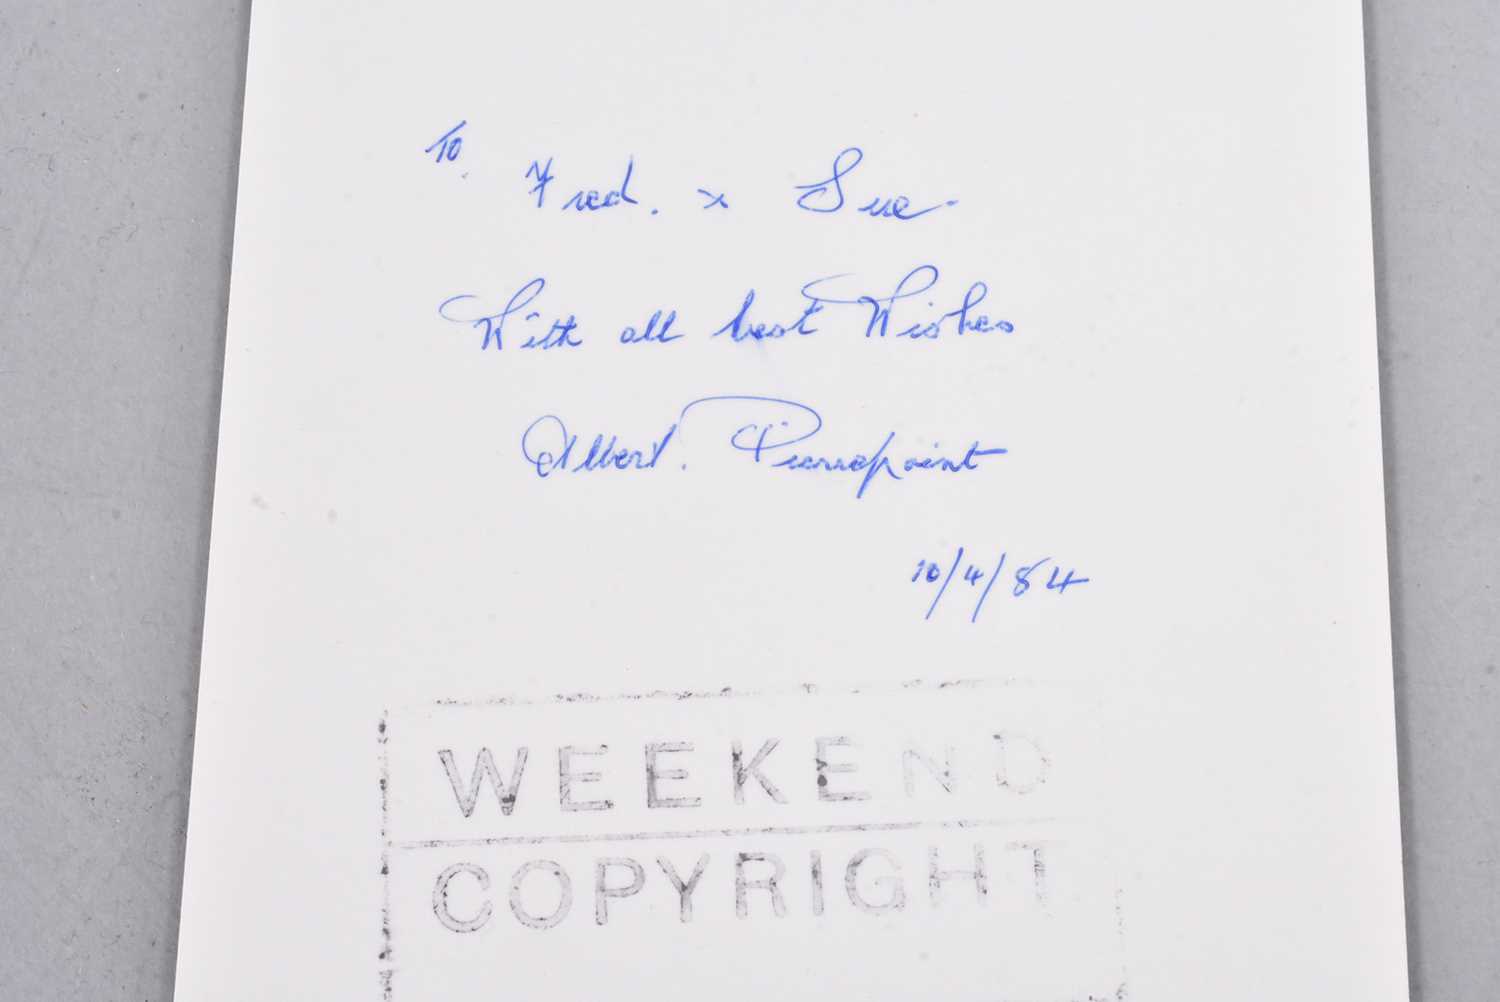 To
Fred. x Sue.
With all best Wishes
Albert. Pierrepoint
10/4/84
WEEKEND
COPYRIGHT